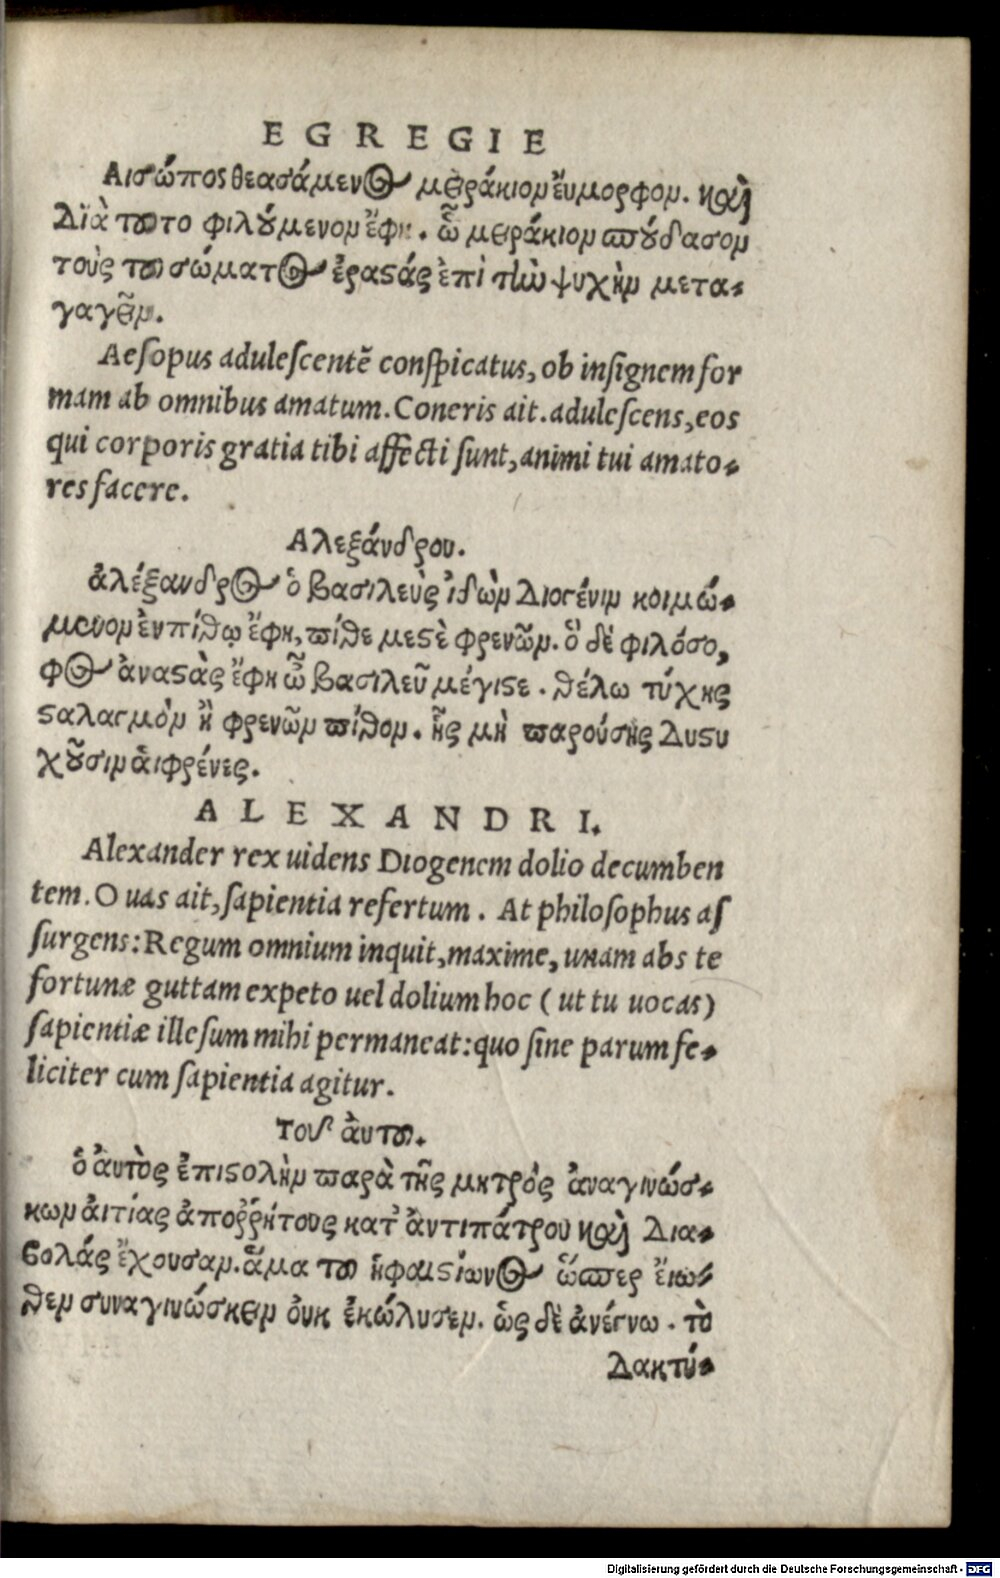 EGREGIE
Αισώπος θεασάμενος μειράκιον ἔυμορφον. καὶ
Διὰ τουτο φιλούμενον ἔφη. ὦ μειράκιον σπούδασον
τοὺς του σώματος ἐραστάς ἐπὶ τὴν ψυχὴν μετα-
γαγεῖν.
Aesopus adulescentē conspicatus, ob insignem for
mam ab omnibus amatum. Coneris ait. adulescens, eos
qui corporis gratia tibi affecti sunt, animi tui amato-
res facere.
Αλεξάνδρου.
ἀλέξανδρος ὁ βασιλεὺς ἰδὼν Διογένην κοιμώ-
μενον ἐν πίθῳ ἔφη, πίθε μεστὲ φρενῶν. ὃ δὲ φιλόσο,
φος ἀναστὰς ἔφη ὦ βασιλεῦ μέγιστε. θέλω τύχης
σταλαγμὸν ἢ φρενῶν πίθον. ἧς μὴ παρούσης Δυστυ
χοῦσιν ἁι φρένες.
ALEXANDRI.
Alexander rex uidens Diogenem dolio decumben
tem. O uas ait, sapientia refertum. At philosophus as
surgens: Regum omnium inquit, maxime, unam abs te
fortunæ guttam expeto uel dolium hoc (ut tu uocas)
sapientiæ illesum mihi permaneat: quo sine parum fe-
liciter cum sapientia agitur.
Του ἀυτου.
ὁ ἀυτὸς ἐπιστολὴν παρὰ τῆς μητρὸς ἀναγινώσ-
κων ἀιτίας ἀποῤῥήτους κατ' ἀντιπάτρου καὶ Δια-
βολάς ἔχουσαν. ἅμα του ἡφαιστίωνος ὥσπερ ἔιω-
θεν συναγινώσκειν ὀυκ ἐκώλυσεν. ὡς δὲ ἀνέγνω. τὸ
Δακτύ-
Digitalisierung gefördert durch die Deutsche Forschungsgemeinschaft - DFG